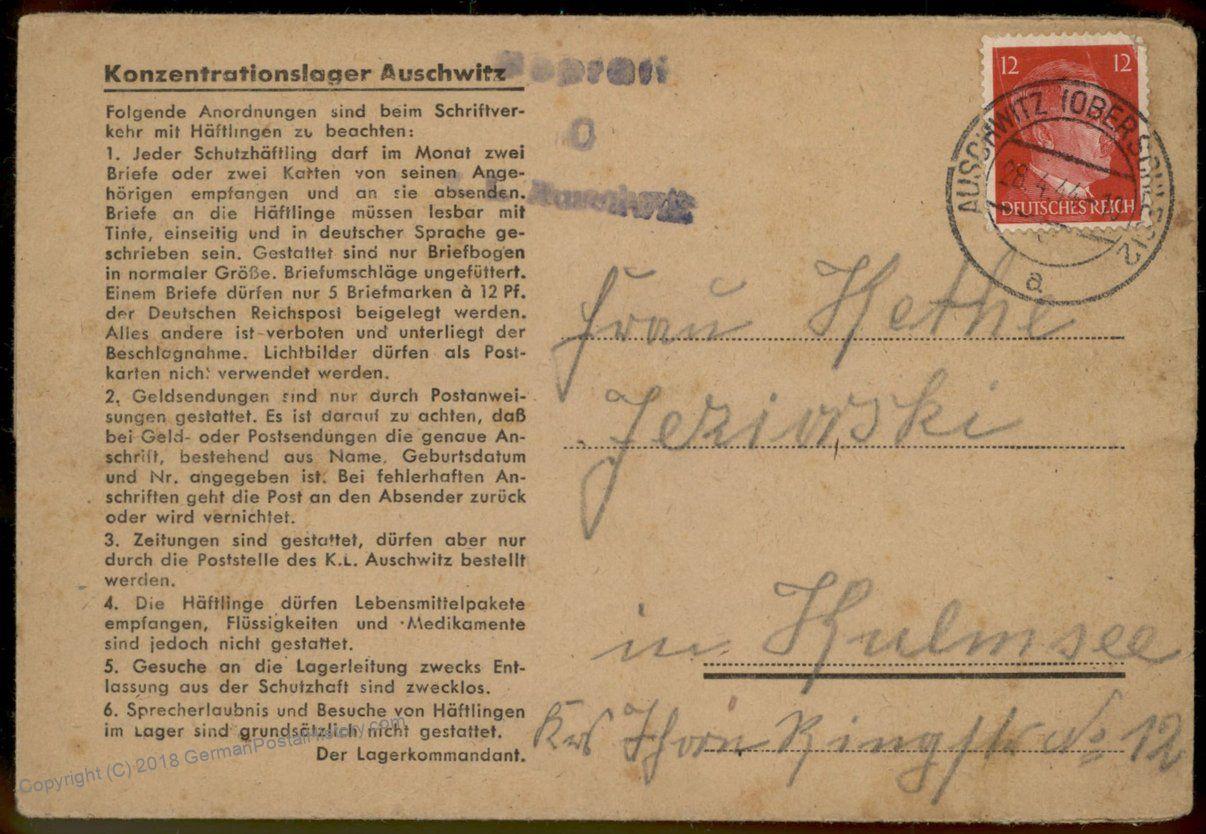 Konzentrationslager Auschwitz
Folgende Anordnungen sind beim Schriftver-
kehr mit Häftlingen zu beachten:
1. Jeder Schutzhäftling darf im Monat zwei
Briefe oder zwei Karten von seinen Ange-
hörigen empfangen und an sie absenden.
Briefe an die Häftlinge müssen lesbar mit
Tinte, einseitig und in deutscher Sprache ge-
schrieben sein. Gestattet sind nur Briefbogen
in normaler Größe. Briefumschläge ungefüttert.
Einem Briefe dürfen nur 5 Briefmarken à 12 Pf.
der Deutschen Reichspost beigelegt werden.
Alles andere ist verboten und unterliegt der
Beschlagnahme. Lichtbilder dürfen als Post-
karten nicht verwendet werden.
2. Geldsendungen sind nur durch Postanwei-
sungen gestattet. Es ist darauf zu achten, daß
bei Geld- oder Postsendungen die genaue An-
schrift, bestehend aus Name, Geburtsdatum
und Nr. angegeben ist. Bei fehlerhaften An-
schriften geht die Post an den Absender zurück
oder wird vernichtet.
3. Zeitungen sind gestattet, dürfen aber nur
durch die Poststelle des K.L. Auschwitz bestellt
werden.
4. Die Häftlinge dürfen Lebensmittelpakete
empfangen, Flüssigkeiten und Medikamente
sind jedoch nicht gestattet.
5. Gesuche an die Lagerleitung zwecks Ent-
lassung aus der Schutzhaft sind zwecklos.
6. Sprecherlaubnis und Besuche von Häftlingen
im Lager sind grundsätzlich nicht gestattet.
Der Lagerkommandant.
Auschwitz
12 12
DEUTSCHES REICH
AUSCHWITZ (OBERSCHLES)
a
Frau Kethe
Jeziorski
in Kulmsee
Krs Thorn Ringstr No 12
Copyright (C) 2018 GermanPostalHistory.com